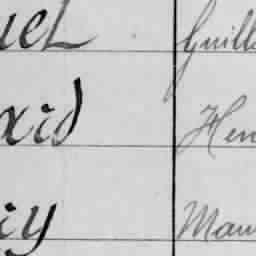 uel Guill
xid Hen
iy Mau